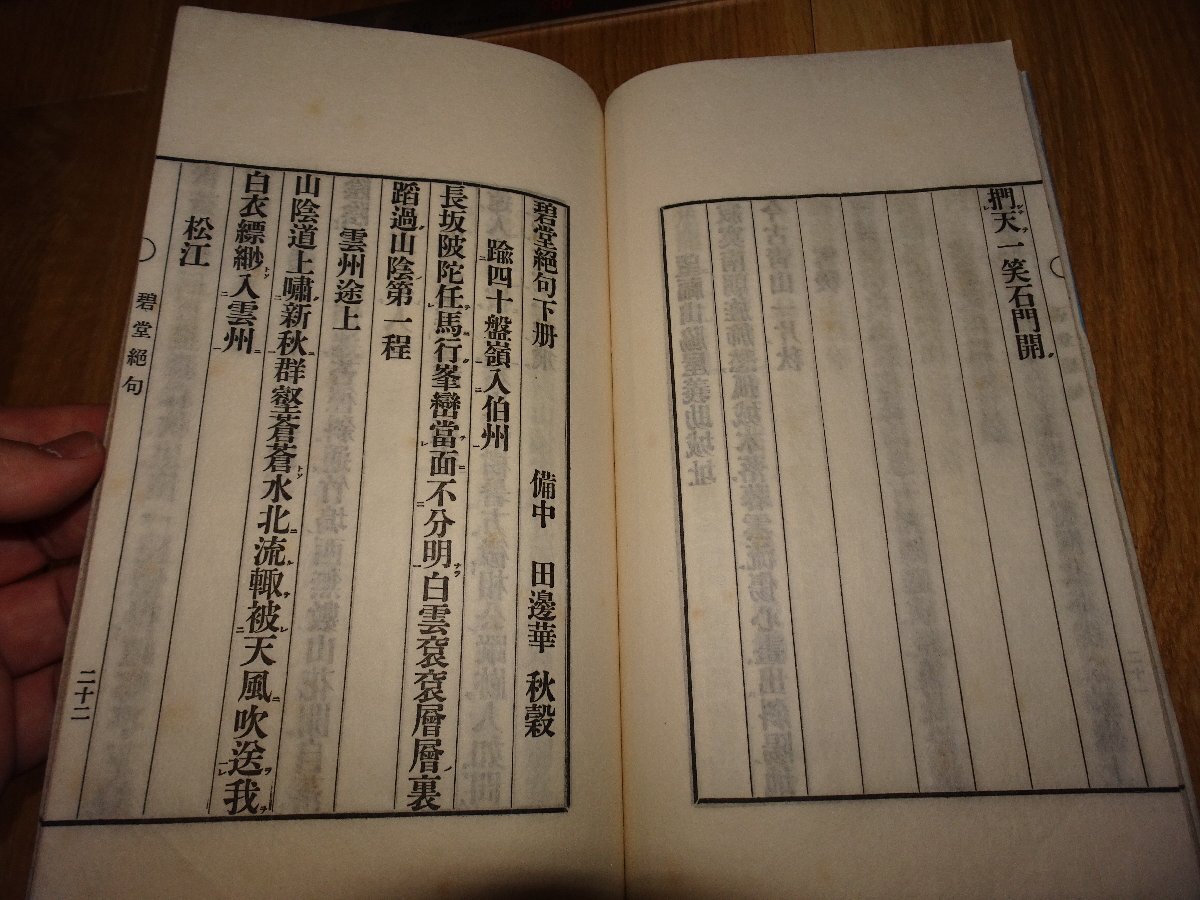 捫天一笑石門開
碧堂絕句下册
備中 田邊華 秋穀
踰四十盤嶺入伯州
長坂陂陀任馬行峯巒當面不分明白雲袞袞層層裏
蹈過山陰第一程
雲州途上
山陰道上嘯新秋群壑蒼蒼水北流輙被天風吹送我
白衣縹緲入雲州
松江
碧堂絕句
二十二